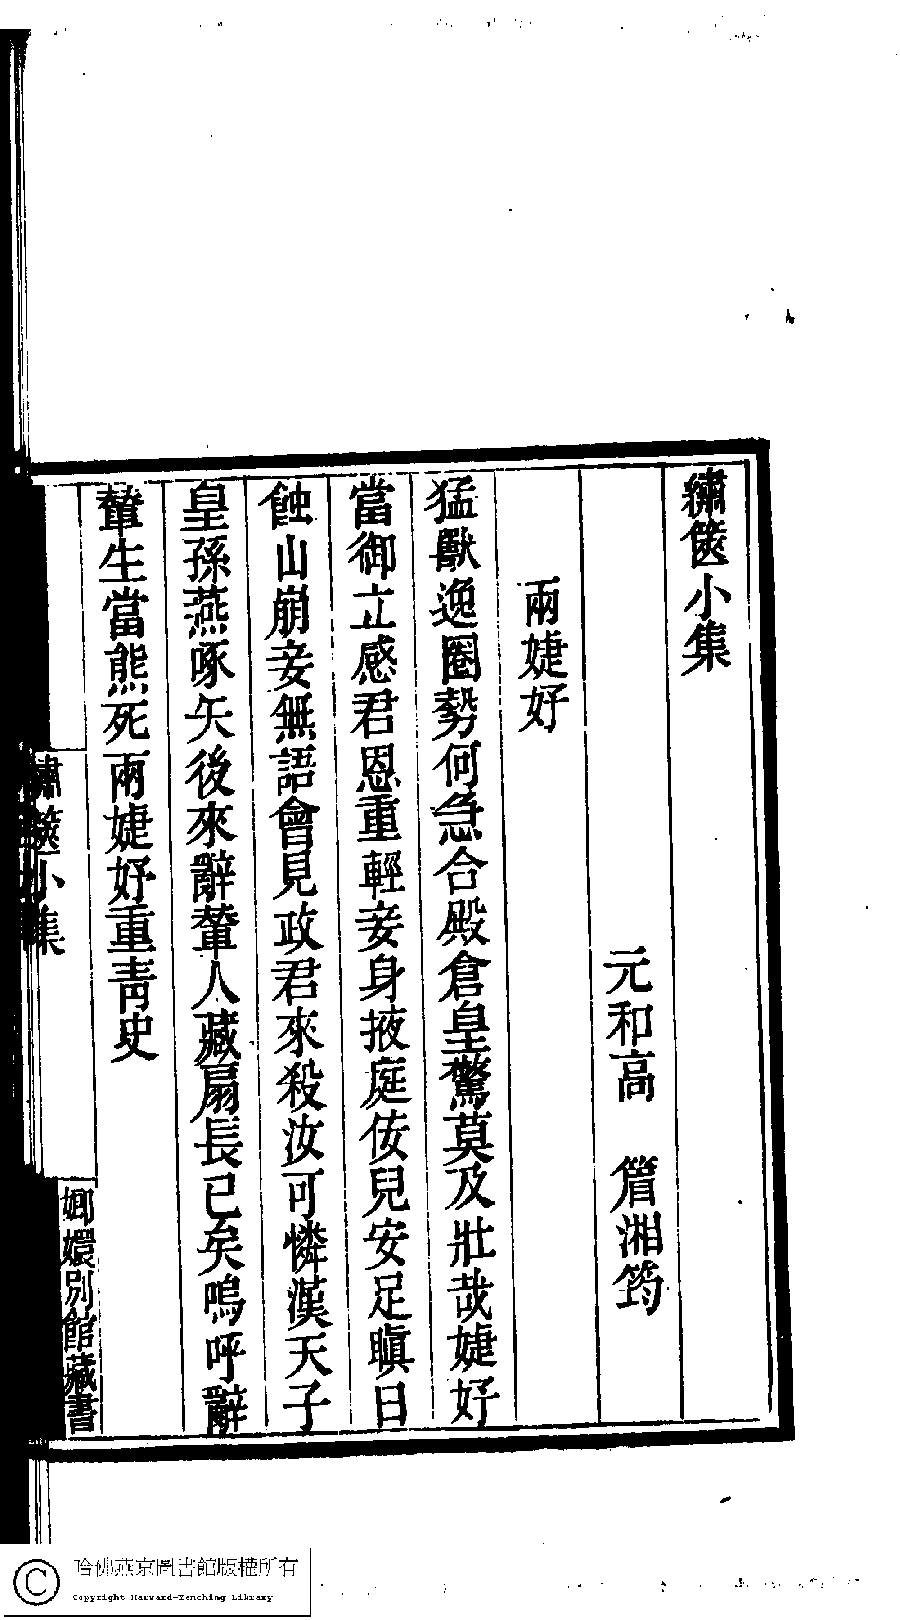 繡篋小集
元和高　篃湘筠
兩婕妤
猛獸逸圈勢何急合殿倉皇驚莫及壯哉婕妤
當御立感君恩重輕妾身掖庭侫兒安足瞋日
蝕山崩妾無語會見政君來殺汝可憐漢天子
皇孫燕啄矢後來辭輦人藏扇長已矣嗚呼辭
輦生當熊死兩婕妤重靑史
繡篋小集
嫏嬛別館藏書
哈佛燕京圖書館版權所有
Copyright Harvard-Yenching Library